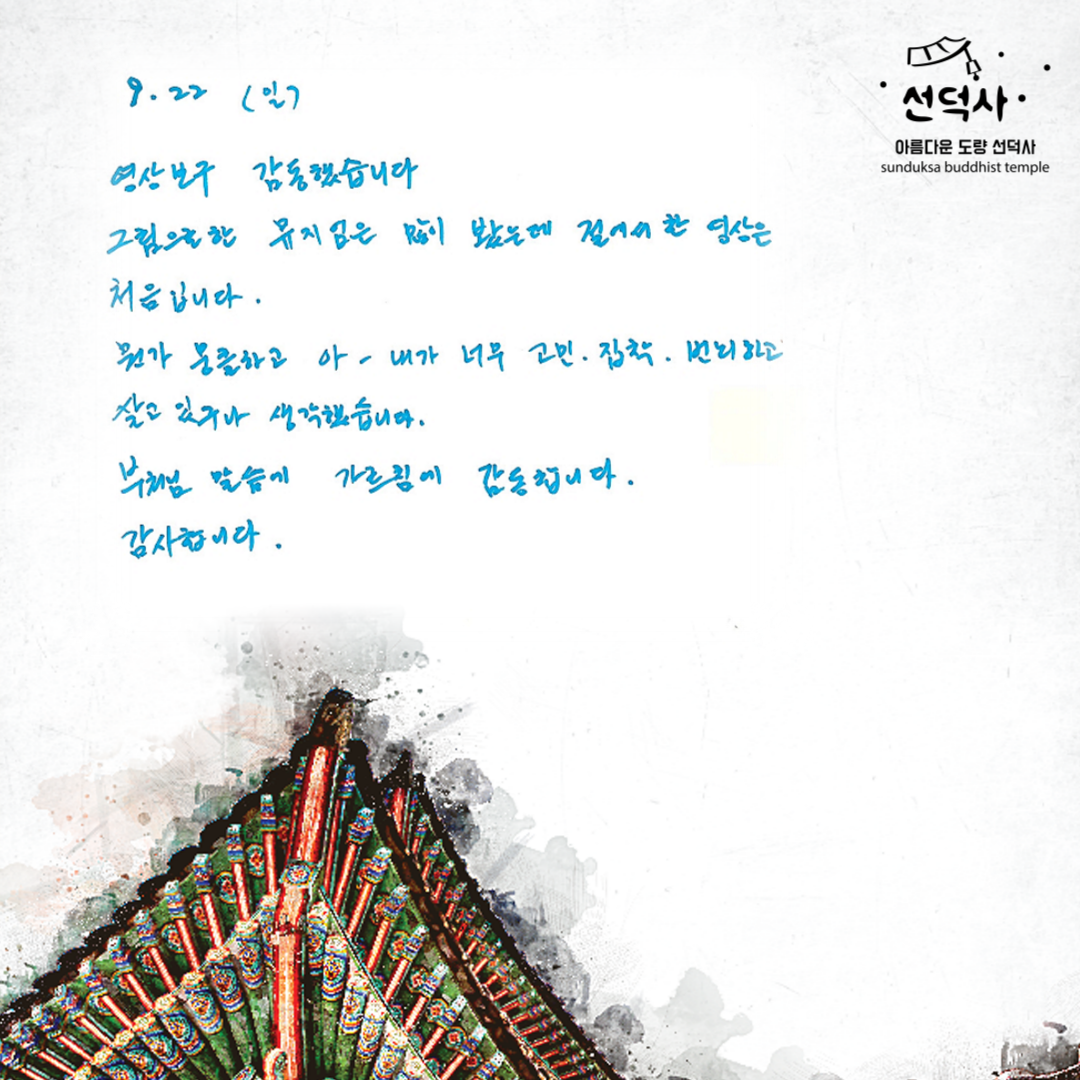 선덕사
아름다운 도량 선덕사
sunduksa buddhist temple
9. 22 (일)
영상보구 감동했습니다
그림으로한 뮤지엄은 많이 봤는데 절에서 한 영상은
처음입니다.
뭔가 뭉클하고 아 - 내가 너무 고민. 집착. 번뇌하고
살고 있구나 생각했습니다.
부처님 말씀에 가르침에 감동합니다.
감사합니다.